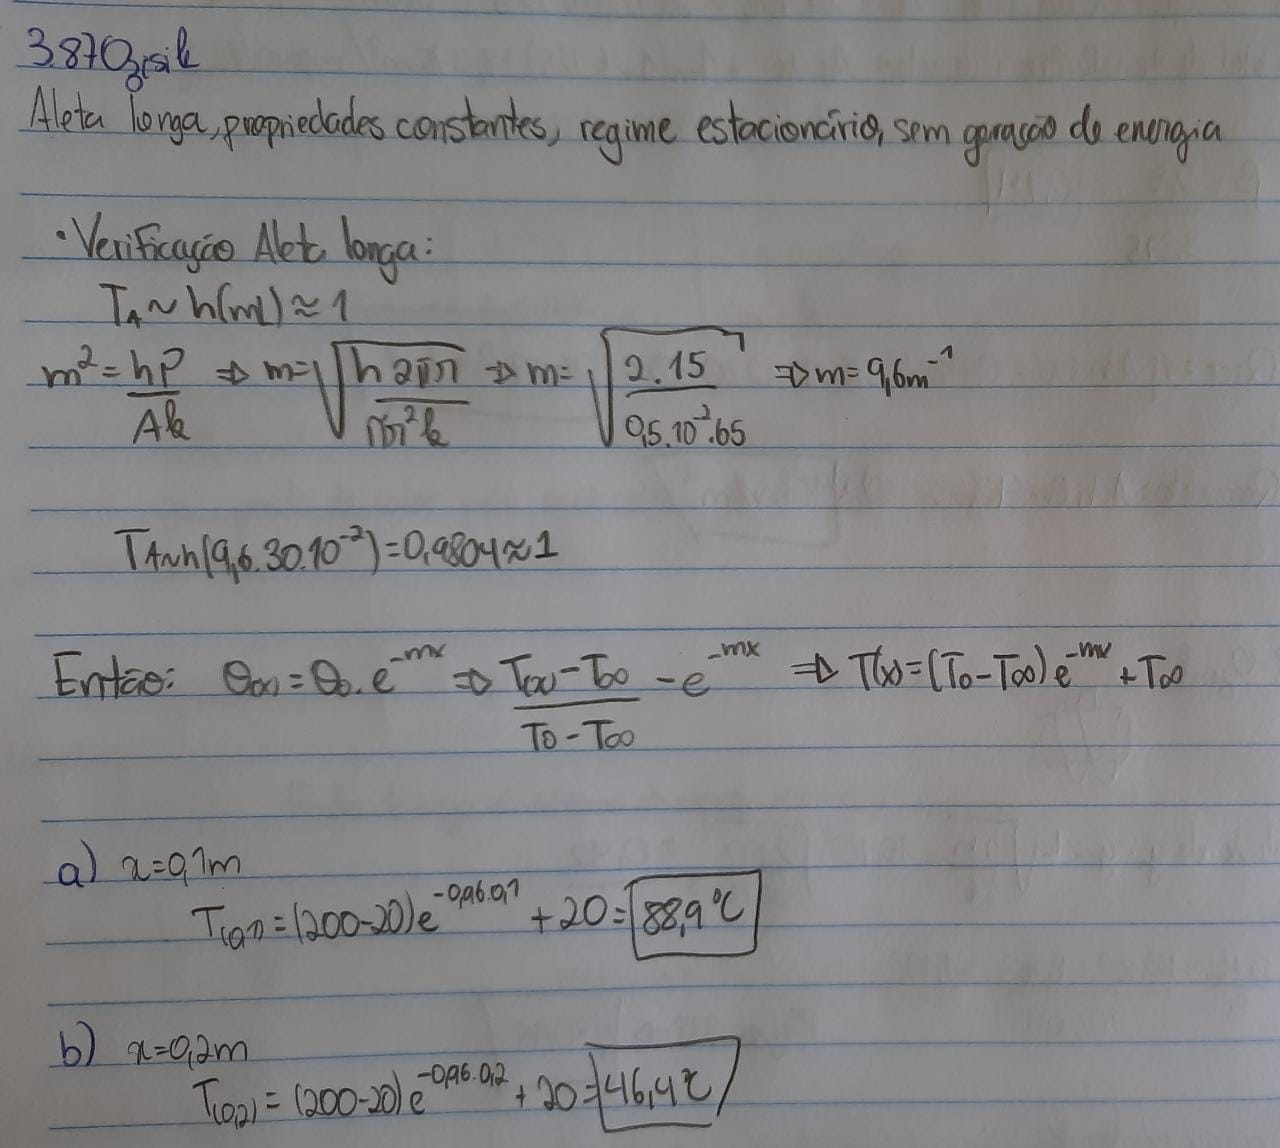 3.87 Ozisik
Aleta longa, propriedades constantes, regime estacionário, sem geração de energia
• Verificação Aleta longa:
TANh(mL) ≈ 1
m² = hP/Ak ⇒ m = √(h2πr/πr²k) ⇒ m = √(2.15/0,5.10⁻².65) ⇒ m = 9,6m⁻¹
TANh(9,6.30.10⁻²) = 0,9804 ≈ 1
Então: θ(x) = θ0.e^-mx ⇒ T(x)-T∞/T0-T∞ - e^-mx ⇒ T(x) = (T0-T∞)e^-mx + T∞
a) x=0,1m
T(0,1) = (200-20)e^-0,96.0,1 + 20 = 88,9°C
b) x=0,2m
T(0,2) = (200-20)e^-0,96.0,2 + 20 = 46,4°C